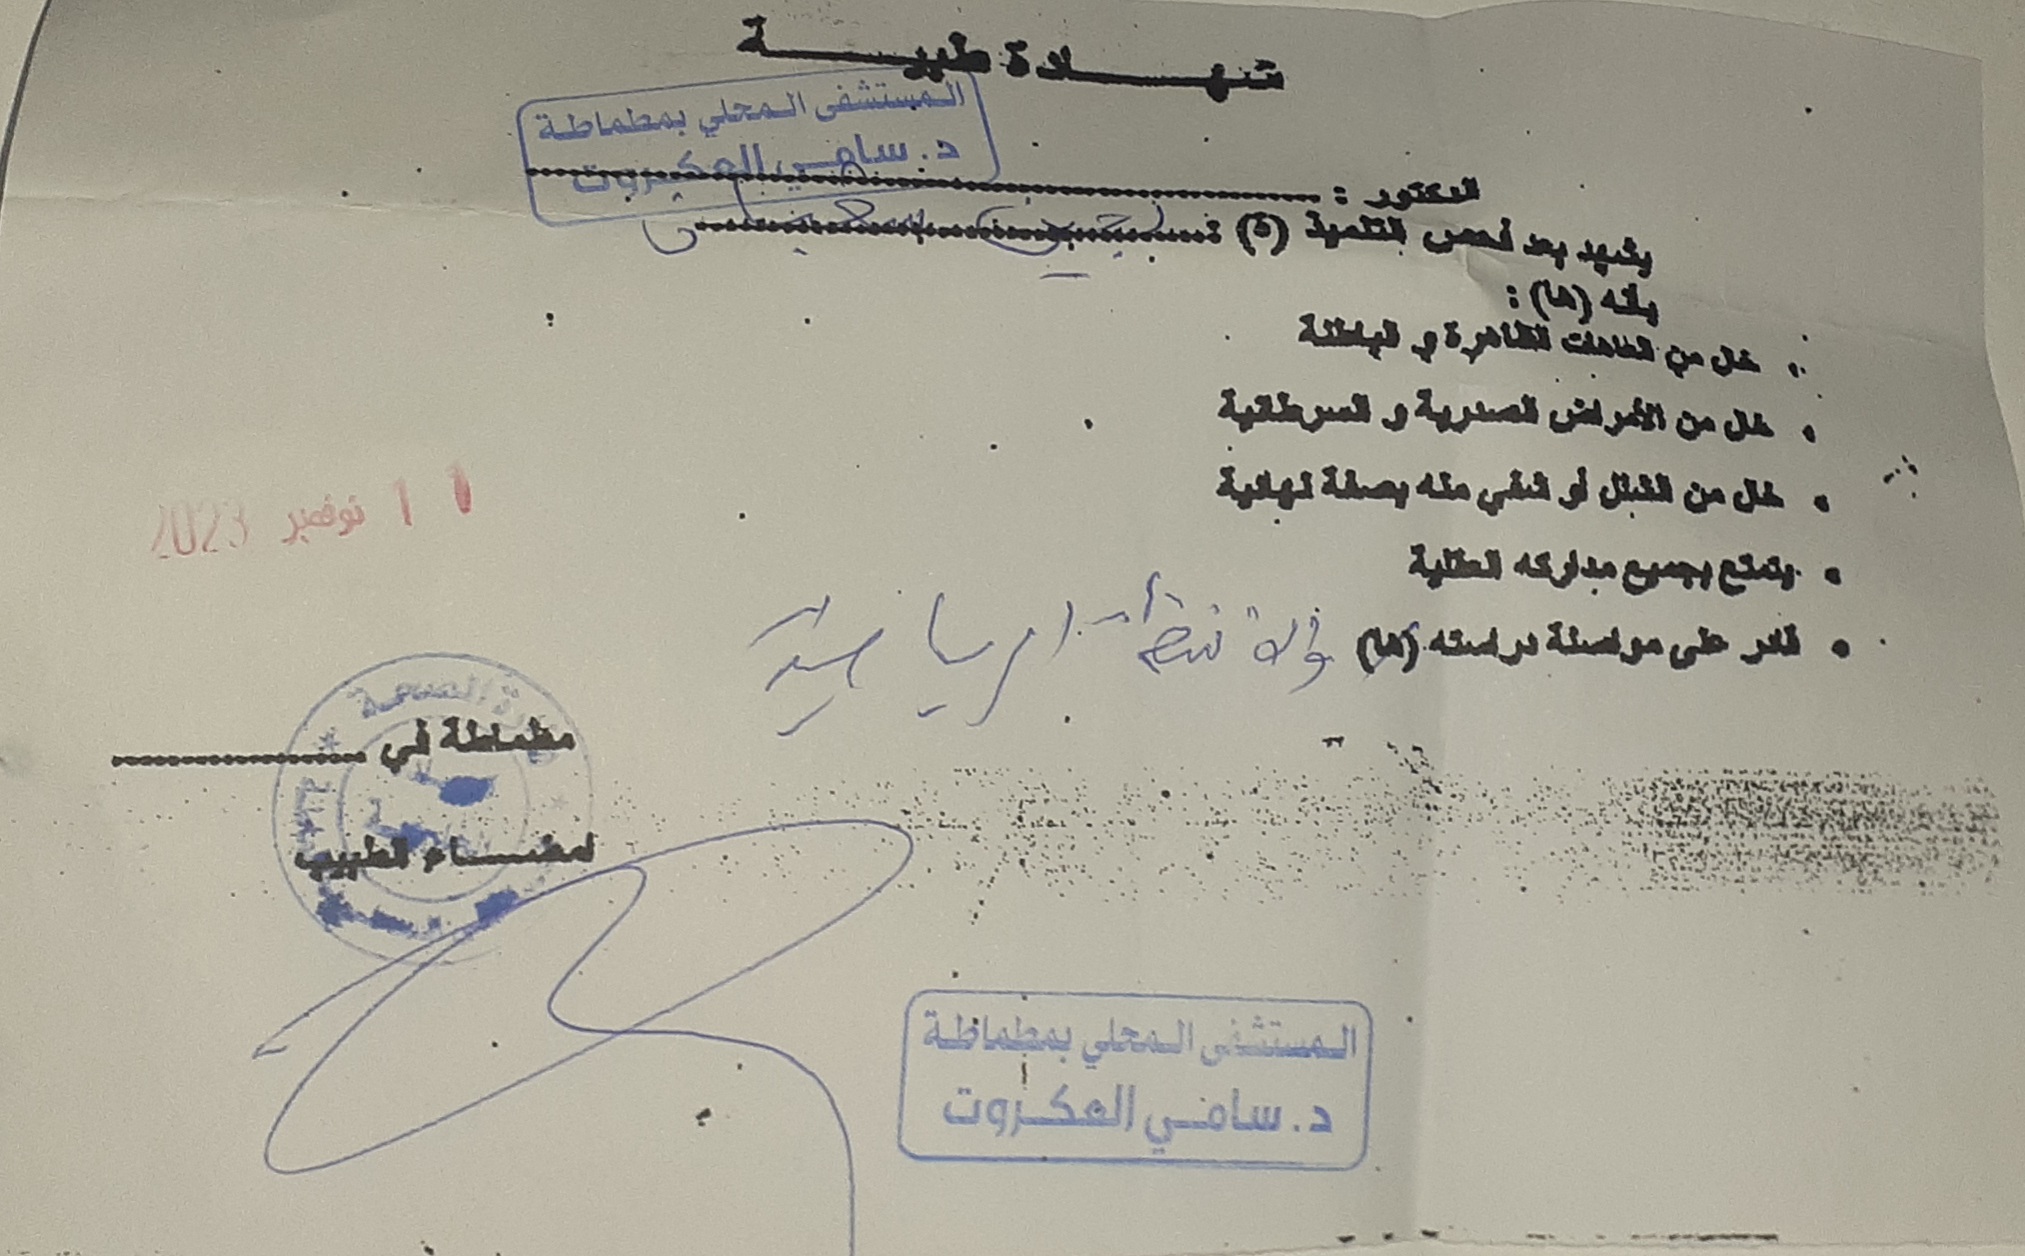 شهـــــادة طبيـــــة
المستشفى المحلي بمطماطة
د. سامي العكروت
الدكتور :
يشهد بعد فحص التلميذ (ة)
بأنه (ها) :
• خال من العاهات الظاهرة و الباطنة
• خال من الأمراض الصدرية و السرطانية
• خال من السل أو شفي منه بصفة نهائية
• يتمتع بجميع مداركه العقلية
• قادر على مواصلة دراسته (ها) والأنشطة الرياضية
11 نوفمبر 2023
مطماطة في
وزارة الصحة
امضـــاء الطبيب
المستشفى المحلي بمطماطة
د. سامي العكروت